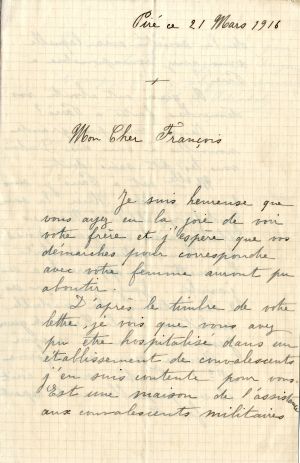 Piré ce 21 Mars 1916
+
Mon Cher François
Je suis heureuse que
vous ayez eu la joie de voir
votre frère et j'espère que vos
démarches pour correspondre
avec votre femme auront pu
aboutir.
D'après le timbre de votre
lettre, je vois que vous avez
pu être hospitalisé dans un
établissement de convalescents
j'en suis contente pour vous.
Est une maison de l'assistance
aux convalescents militaires